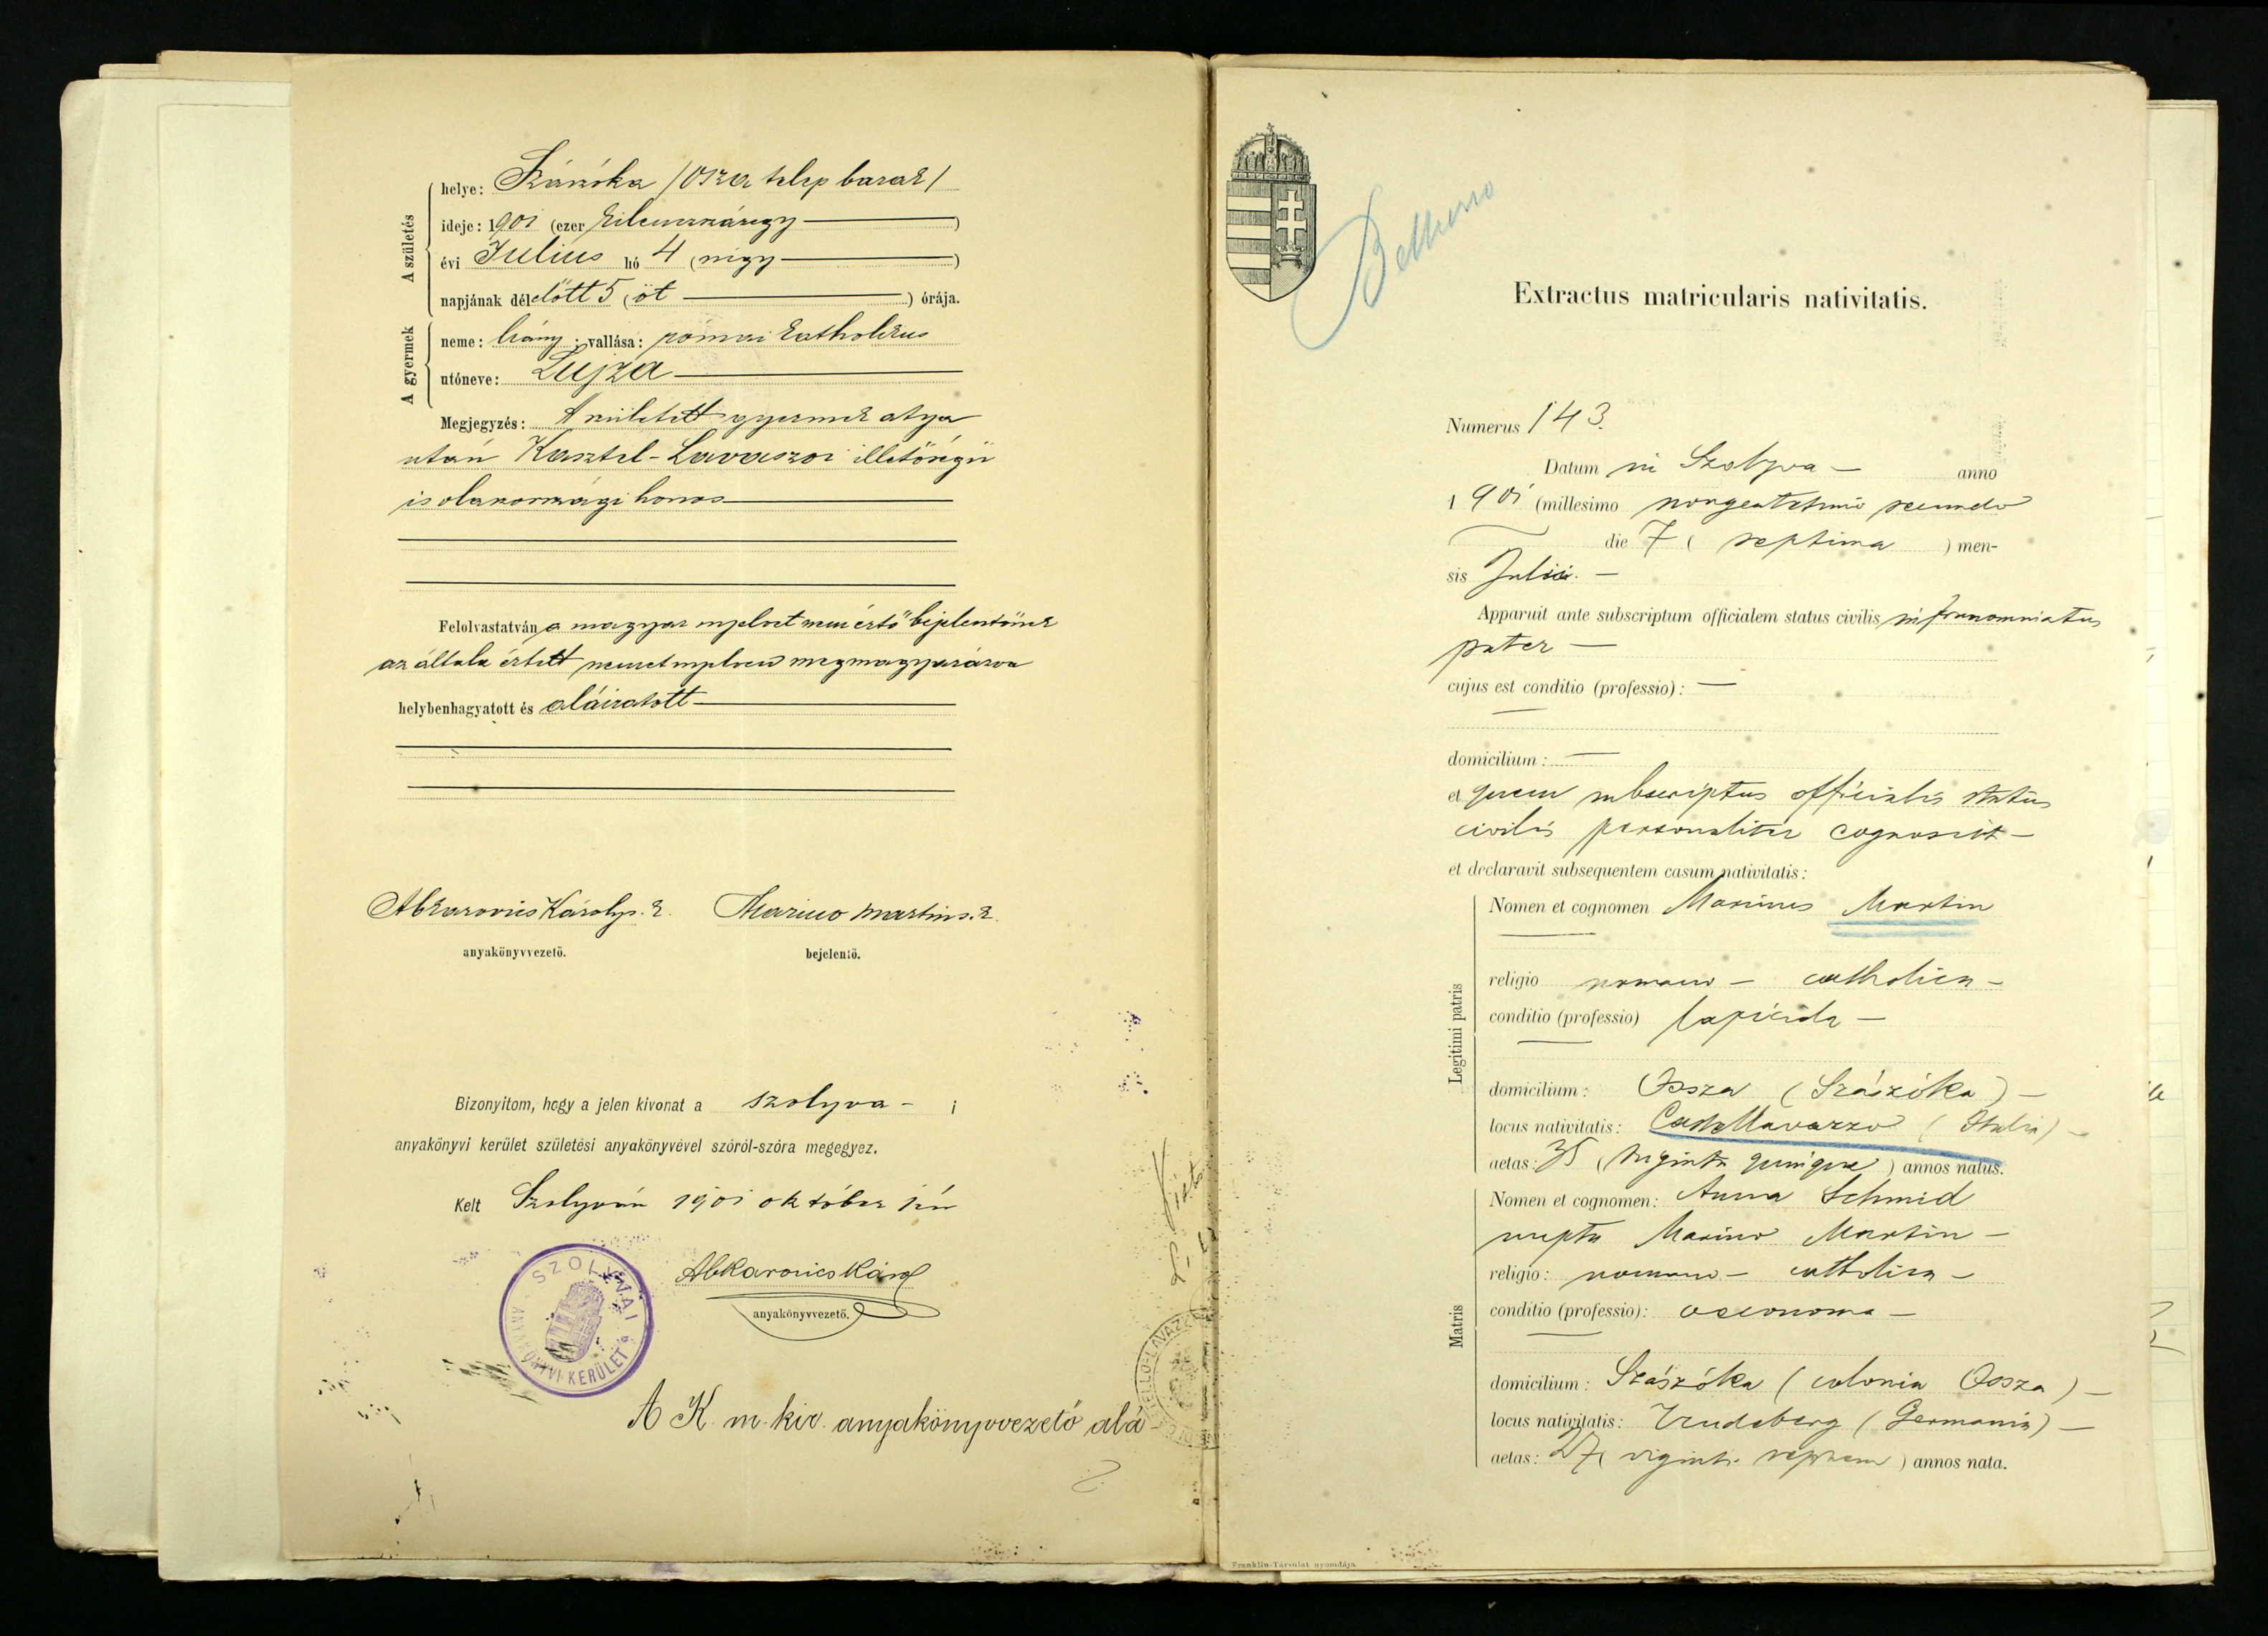 A születés
helye: Szászóka /Osza telep barak/
ideje: 1901 (ezer kilenczszázegy)
évi Julius hó 4 (négy)
napjának délelőtt 5 (öt) órája.
A gyermek
neme: leány; vallása: római katholikus
utóneve: Lujza
Megjegyzés: A született gyermek atya
után Kasztel-Lavaszoi illetőségű
is olaszországi honos
Felolvastatván a magyar nyelvet nem értő bejelentőnek
az általa értett német nyelven megmagyarázva
helybenhagyatott és aláiratott
Abkarovics Károly s. k. Marino Martin s. k.
anyakönyvvezető. bejelentő.
Bizonyitom, hogy a jelen kivonat a szolyva - i
anyakönyvi kerület születési anyakönyvével szóról-szóra megegyez.
Kelt Szolyván 1901 október
Abkarovics Károly
anyakönyvvezető.
SZOLYVAI ANYAKÖNYVI KERÜLET
A K. m. kir. anyakönyvvezető alá-
Belluno
Extractus matricularis nativitatis.
Numerus 143.
Datum in Szolyva — anno
1901 (millesimo nongentesimo secundo
die 7 (septima) men-
sis Julii. —
Apparuit ante subscriptum officialem status civilis infranominatus
pater —
cujus est conditio (professio): —
domicilium: —
et quem subscriptus officialis status
civilis personaliter cognoscit —
et declaravit subsequentem casum nativitatis:
Legitimi patris
Nomen et cognomen Marinus Martin
religio romano - catholica -
conditio (professio) lapicida —
domicilium: Ossza (Szászóka) —
locus nativitatis: Castellavazzo (Italia) -
aetas: 35 (triginta quinque) annos natus.
Matris
Nomen et cognomen: Anna Schmid
nupta Marino Martin -
religio: romano - catholica -
conditio (professio): oeconoma —
domicilium: Szászóka (colonia Ossza) —
locus nativitatis: Trudeberg (Germania) —
aetas: 27 (viginti septem) annos nata.
Franklin-Társulat nyomdája.